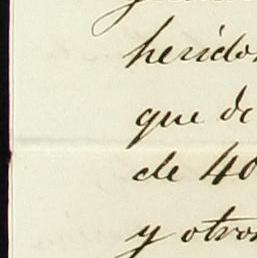 heridos
que de
de 40
y otros